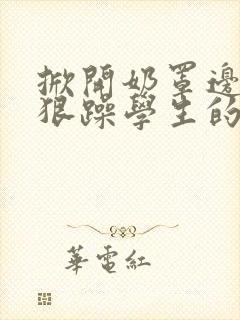 掀開奶罩邊
狠躁學生的
華電紅